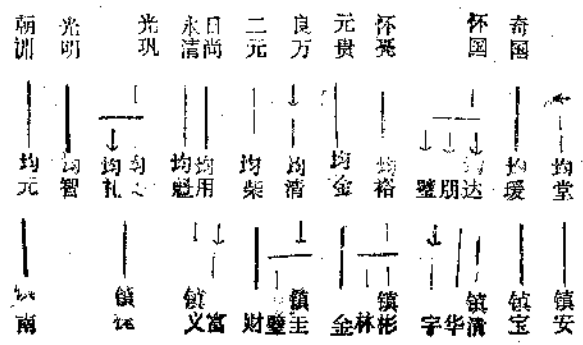 朝训 光明 光巩 永清 日尚 二元 良万 元贵 怀亮 怀国 奇国
均元 均智 均礼 均 均魁 均用 均柴 均清 均金 均裕 璧 朋 均达 均瑗 均堂
南 镇 镇义 富 财 璧 镇圭 金 林 镇彬 宇 华 镇清 镇宝 镇安